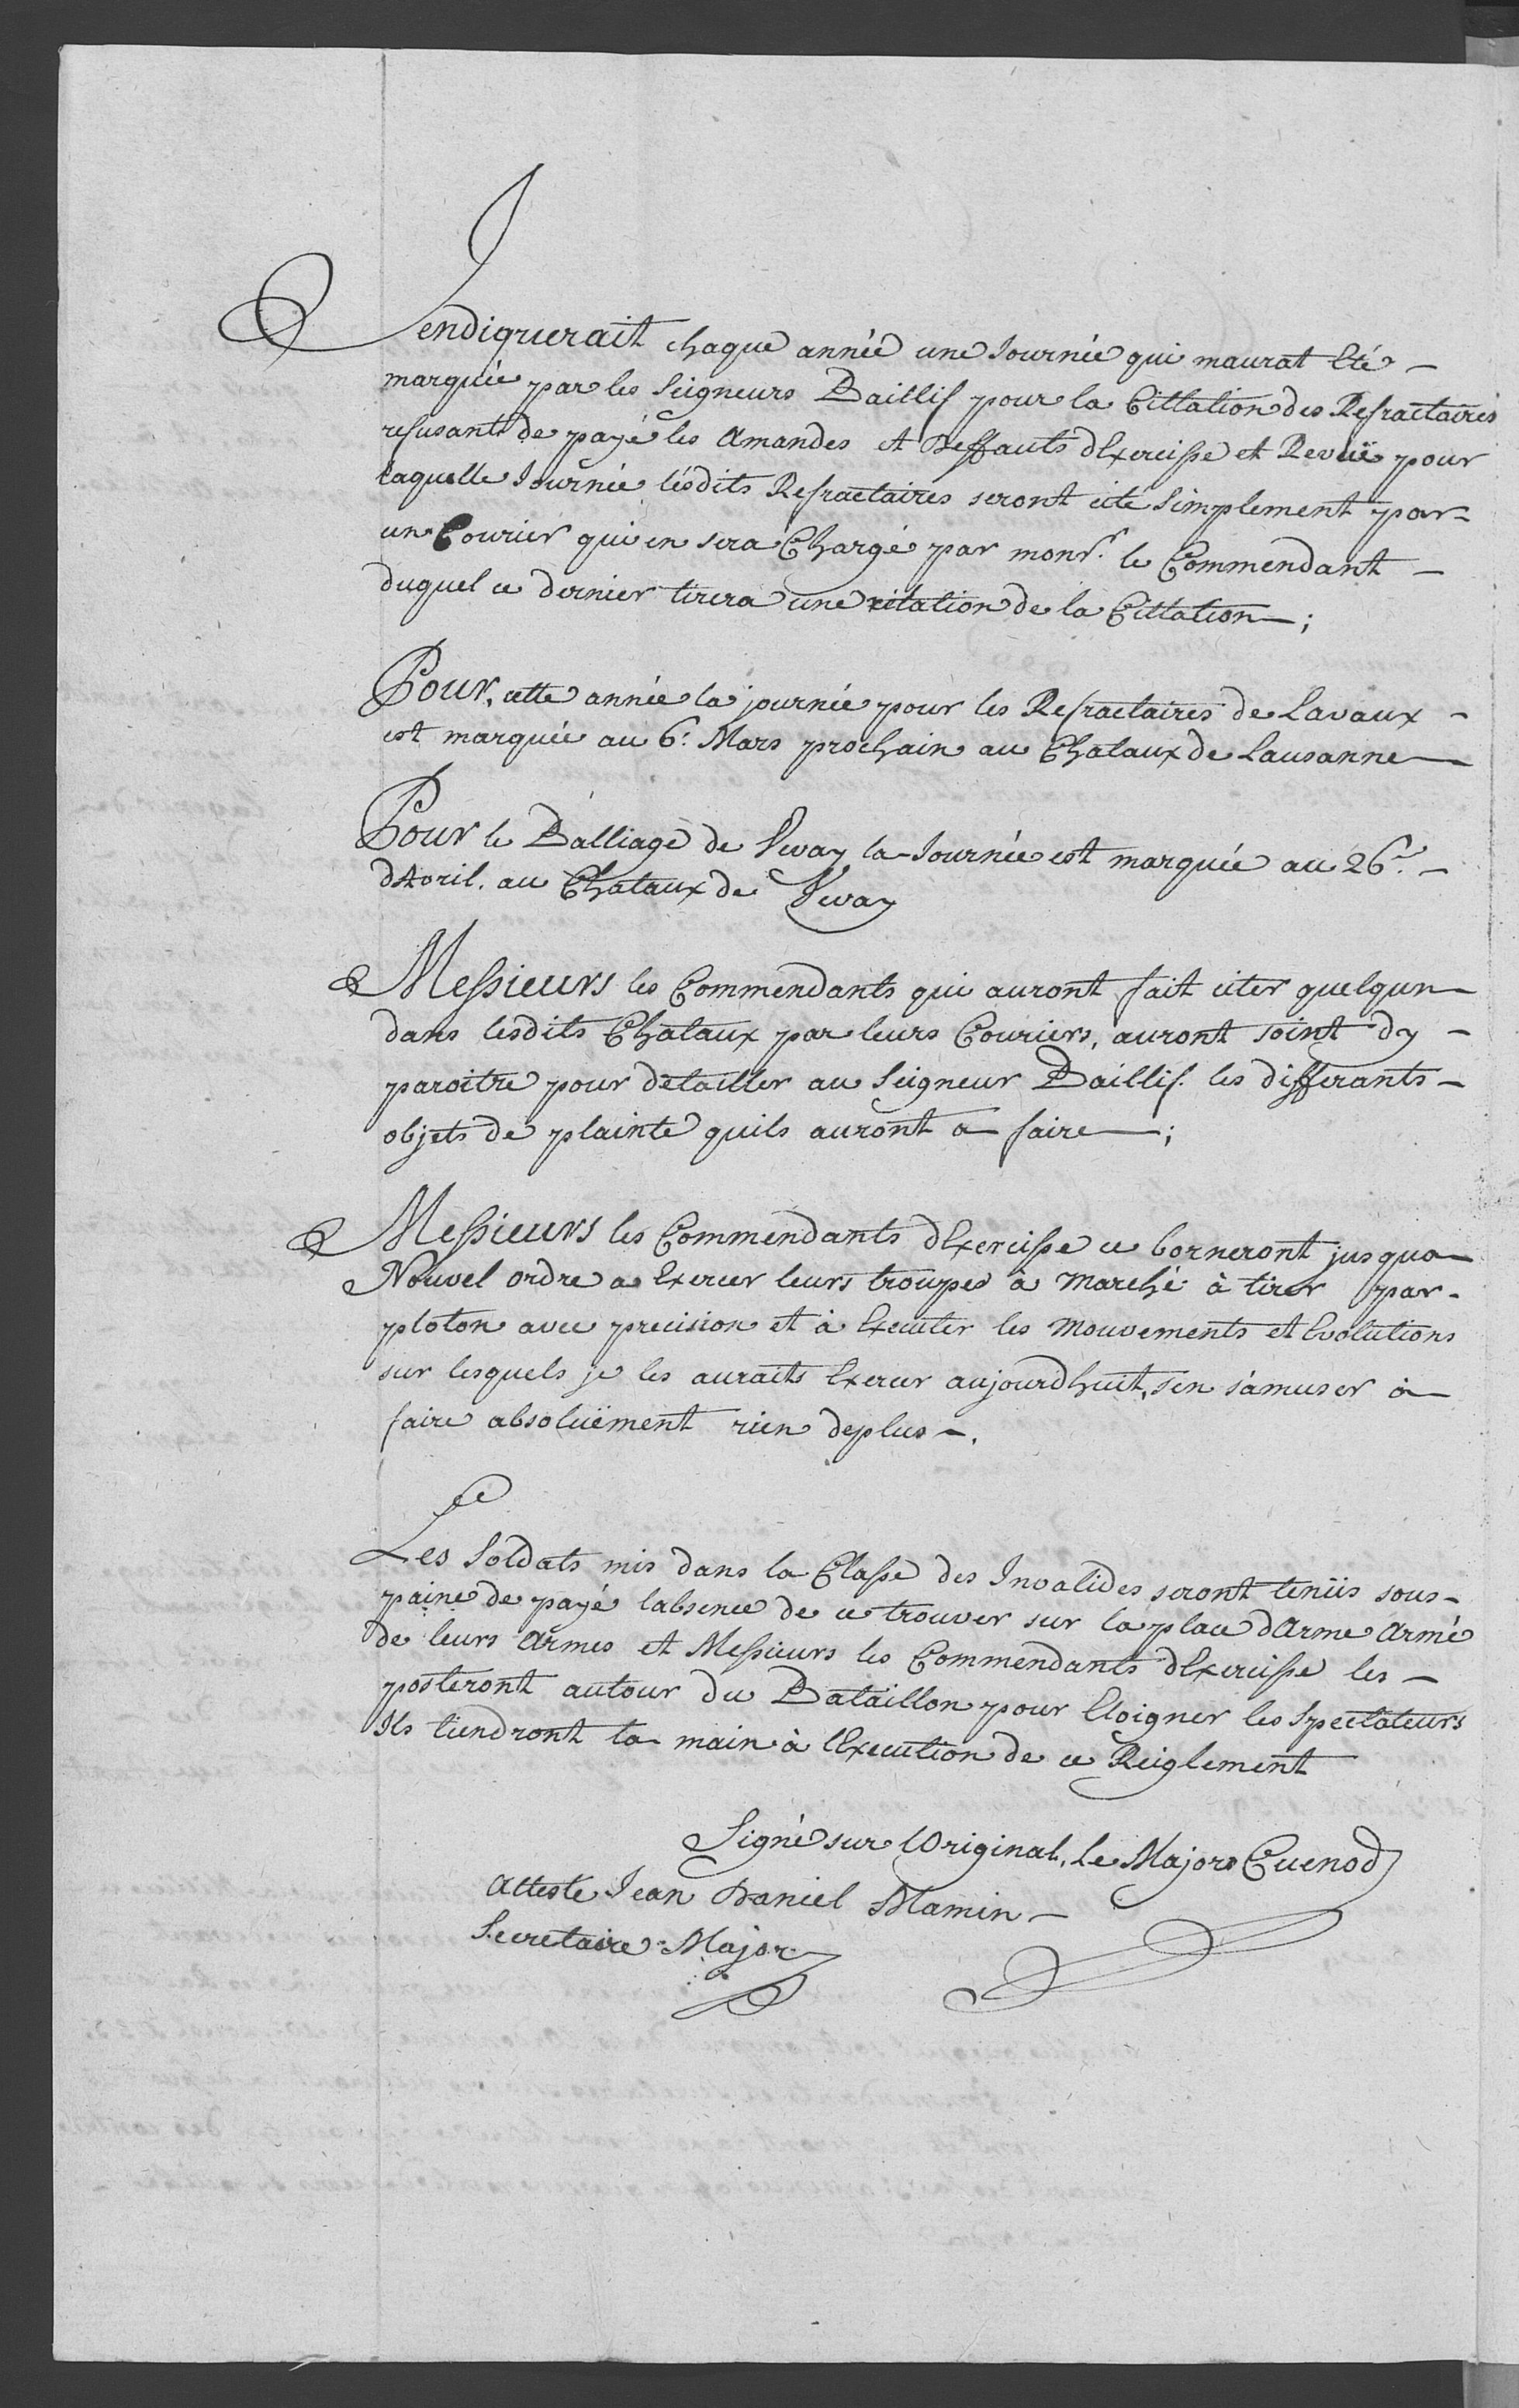 Jendiquerait chaque année une Journée qui maurat Eté –
marquée par les Seigneurs Baillif pour la Cittation des Refractaires
refusants de payé les Amandes et Deffauts dExercisse et Revuë pour
laquelle Journée lésdits Refractaires seront cité Simplement par –
un Courier qui en sera Chargé par monsr. le Commendant –
duquel ce dernier tirera une rélation de la Cittation –;
Pour, cette année la journée pour les Refractaires de Lavaux –
est marquée au 6: Mars prochain au Chataux de Lausanne –
Pour le Balliage de Vevay la Journée est marquée au 26e. –
dAvril. au Chataux de Vevay
Messieurs les Commendants qui auront fait citer quelqun –
dans lesdits Châtaux par leurs Couriers, auront soint dy –
paroitre pour détailler au Seigneur Baillif. les differants –
objets de plainte quils auront a faire –;
Messieurs les Commendants dExercisse ce borneront jusqua –
Nouvel ordre a Exercer leurs troupes à Marché à tirer par –
ploton avec precision et à Executer les Mouvements et Evolutions
sur lesquels je les auraits Exercer aujourdhuit, sen s'amuser à –
faire absoluëment rien deplus –.
Les Soldats mis dans la Classe des Invalides seront tenüs sous –
paine de payé labsence de ce trouver sur la place dArme Armé
de leurs Armes et Messieurs les Commendants dExercisse les –
posteront autour du Bataillon pour Eloigner les Spectateurs
Ils tiendront la main à lExecution de ce Reiglement
Signé sur lOriginal, Le Major Cuenod
Atteste Jean Daniel Mamin –
Secretaire Major